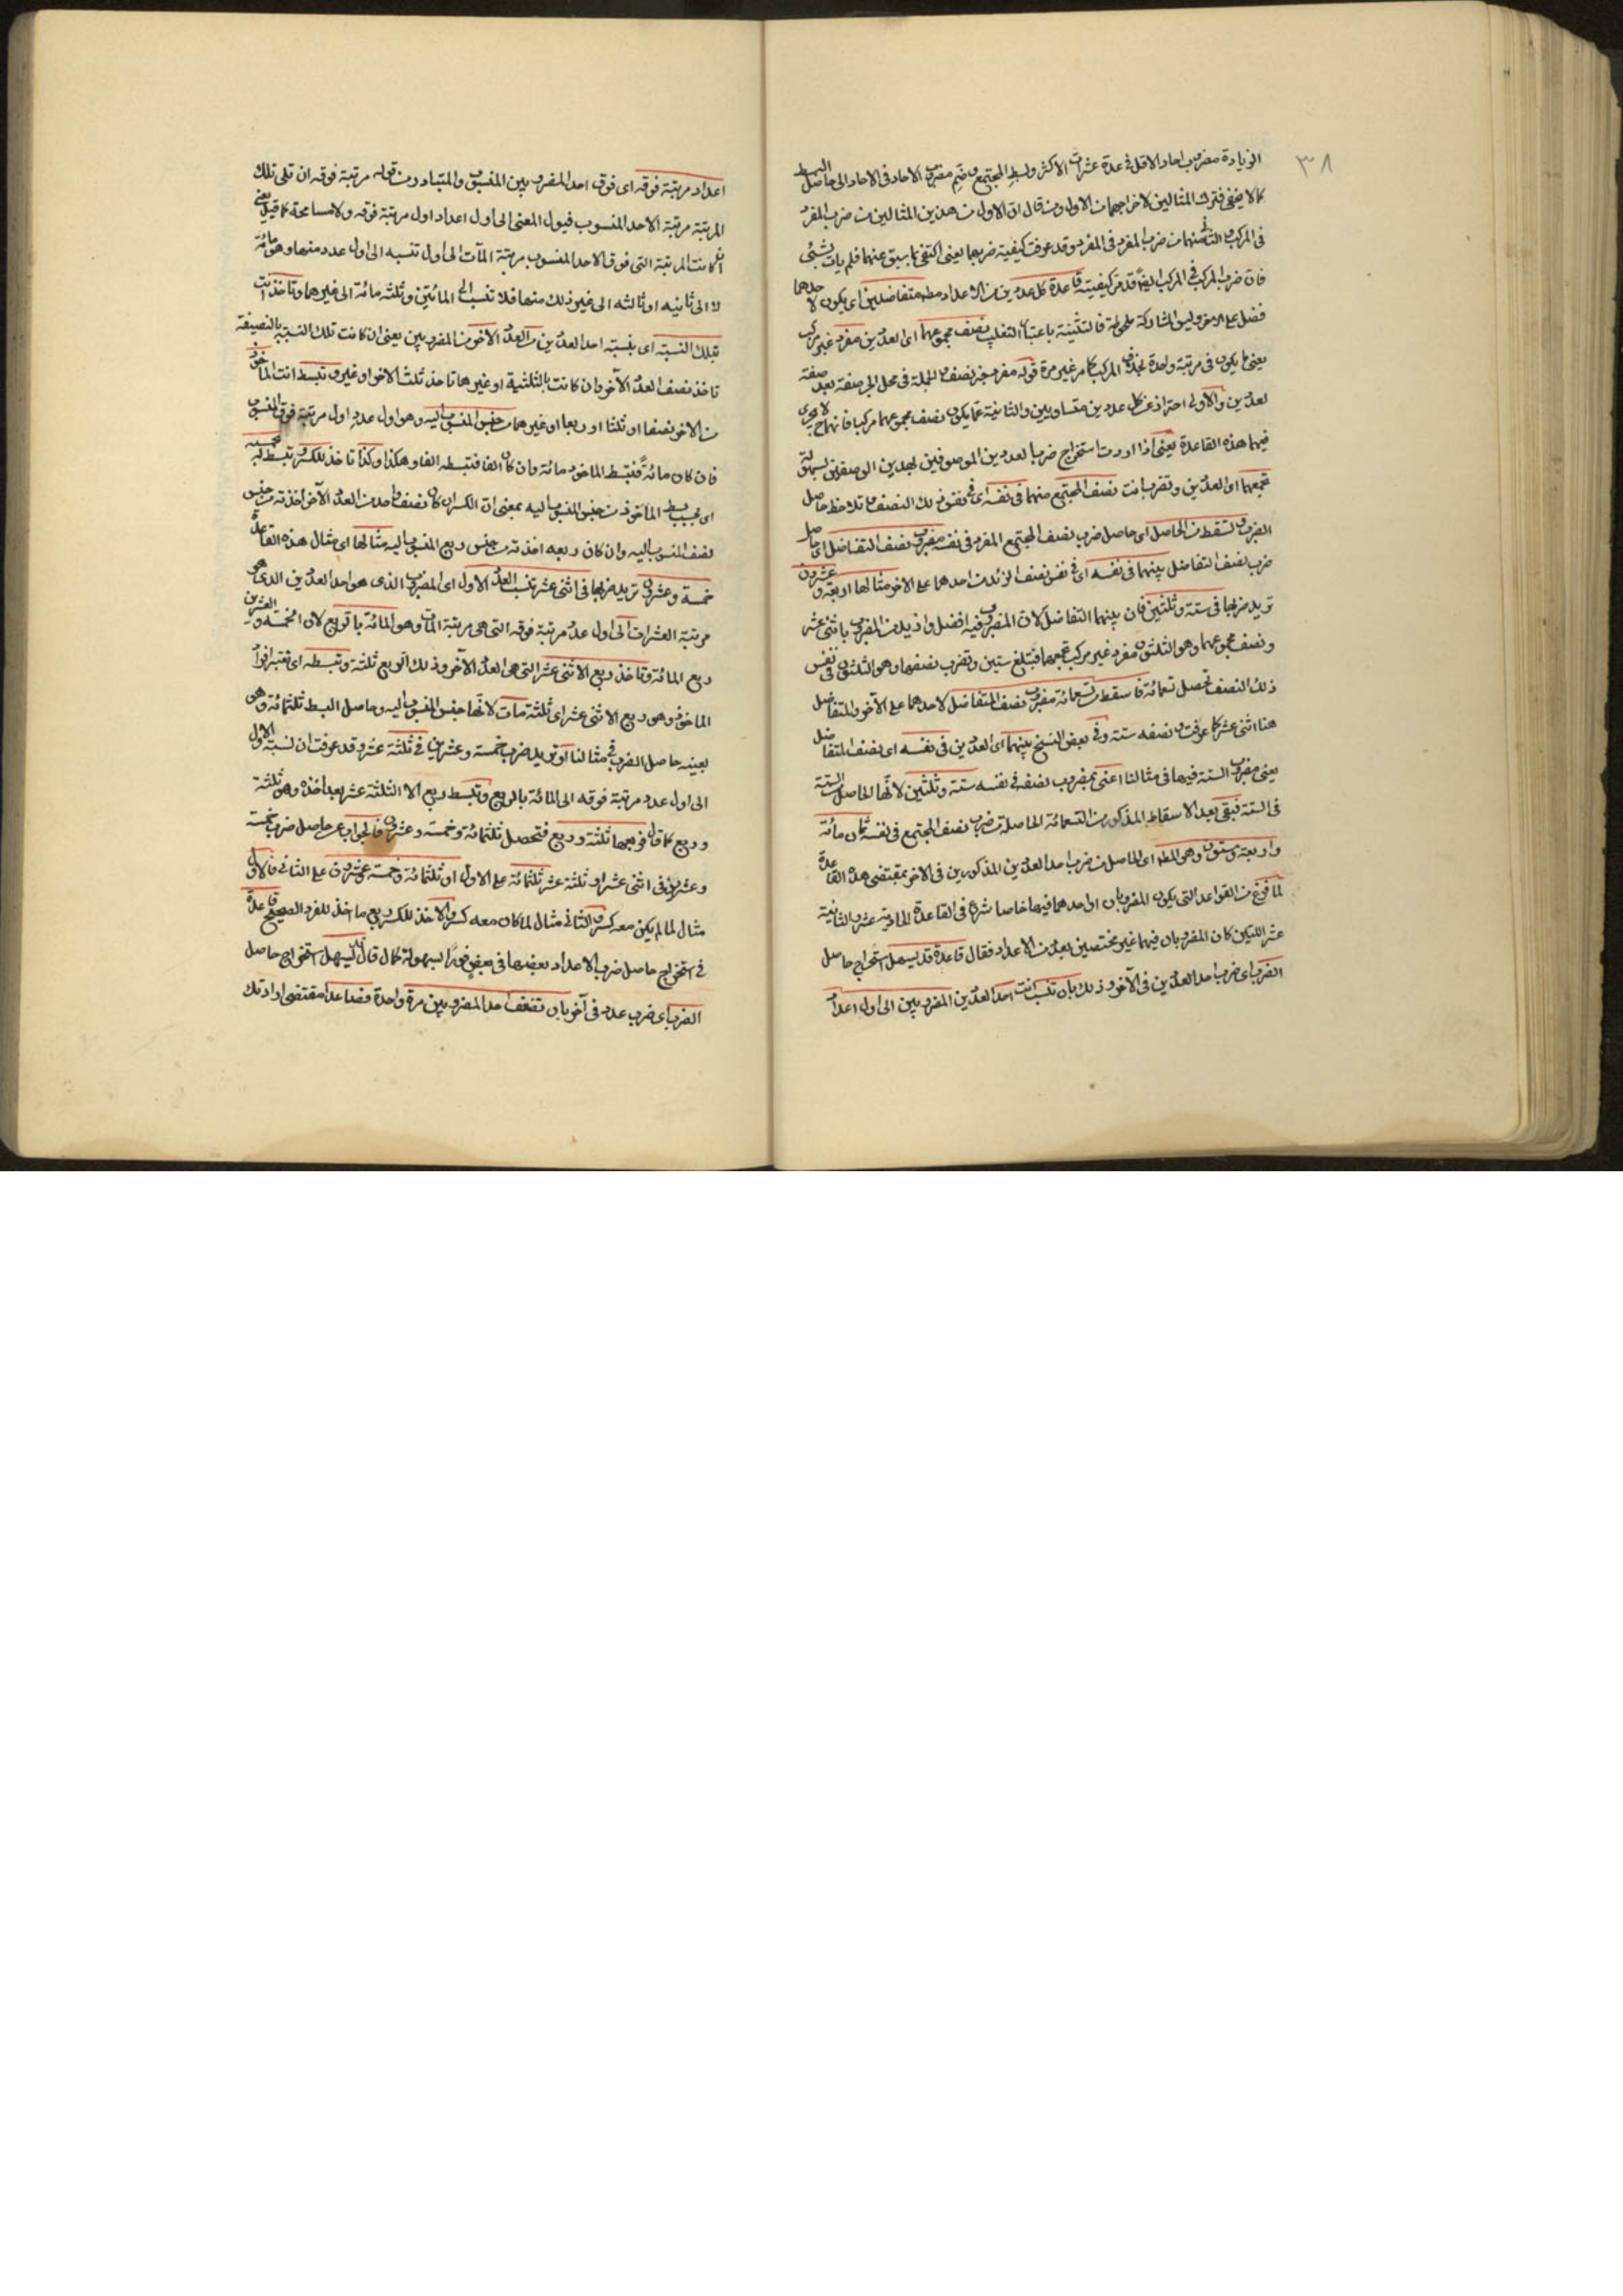 ٣٨
الزيادة مضروب احاد الاقل فى عدة عشرات الاكثر وبسط المجتمع وضم مضروب الاحاد فى الاحاد الى حاصل البسط
كما لا يخفى فترك المثالين لاخراجهما من الاول ومن قال ان الاول من هذين المثالين من ضرب المفرد
فى المركب والثانى منهما من ضرب المفرد فى المفرد وقد عرفت كيفية ضربهما يعنى اكتفى بما سبق عنهما فلم يات بشئ
فان ضرب المركب فى المركب ايضا قد مر كيفيته قاعدة كل عددين من الاعداد مطلقا متفاضلين اى يكون لاحدهما
فضل على الاخر وليس المشاركة ملحوظة فالتثنية باعتبار التغليب نصف مجموعهما اى العددين مفرد غير مركب
يعنى ما يكون فى مرتبة واحدة بخلاف المركب كما مر غير مرة قوله مفرد خبر نصف والجملة فى محل الجر صفة بعد صفة
لعددين والاولى احتراز عن كل عددين متساويين والثانية عما يكون نصف مجموعهما مركبا فانهما ح لا يجرى
فيهما هذه القاعدة يعنى اذا اردت استخراج ضرب العددين الموصوفين بهذين الوصفين بسهولة
تجمعهما اى العددين وتضرب انت نصف المجتمع منهما فى نفسه اى فى نفس ذلك النصف فتلاحظ حاصل
الضرب وتسقط من الحاصل اى حاصل ضرب نصف المجتمع المفرد فى نفسه مضروب نصف التفاضل اى حاصل
ضرب نصف التفاضل بينهما فى نفسه اى فى نفس نصف الزائد من احدهما على الاخر مثالها اربعة وعشرون
تريد ضربها فى ستة وثلثين فان بينهما التفاضل لان المضروب فيه افضل وازيد من المضروب باثنى عشر
ونصف مجموعهما وهو الثلثون مفرد غير مركب تجمعهما فتبلغ ستين وتضرب نصفهما وهو الثلثون فى نفس
ذلك النصف تحصل تسعمائة فاسقط من تسعمائة مضروب نصف المتفاضل لاحدهما على الآخر والمتفاضل
هنا اثنى عشر كما عرفت ونصفه ستة وفى بعض النسخ بينهما اى العددين فى نفسه اى نصف المتفاضل
يعنى مضروب الستة فيها فى مثالنا اعنى بمضروب نصفه فى نفسه ستة وثلثين لانها الحاصل من الستة
فى الستة فبقى بعد الاسقاط المذكور من التسعمائة الحاصلة من ضرب نصف المجتمع فى نفسه ثمان مائة
واربعة وستون وهو المط اى الحاصل من ضرب احد العددين المذكورين فى الاخر بمقتضى هذه القاعدة
لما فرغ من القواعد التى يكون المضروبان او احدهما فيها خاصا شرع فى القاعدة الحادية عشر والثانية
عشر اللتين كان المضروبان فيهما غير مختصين بعدد من الاعداد فقال قاعدة قد يسهل استخراج حاصل
الضرب اى ضرب احد العددين فى الآخر وذلك بان تنسب انت احد العددين المضروبين الى اول اعداد
اعداد مرتبة فوقه اى فوق احد المضروبين المنسوب والمتبادر من قوله مرتبة فوقه ان تلى تلك
المرتبة مرتبة الاحد المنسوب فيول المعنى الى اول اعداد اول مرتبة فوقه ولا مسامحة كما قيل يعنى
ان كانت المرتبة التى فوق الاحد المنسوب مرتبة المآت الى اول تنسبه الى اول عدد منها وهو مائة
لا الى ثانيه او ثالثه الى غير ذلك منها فلا تنسب الى المائتين وثلثه مائة الى غيرهما وتاخذ انت
بتلك النسبة اى بنسبة احد العددين من العدد الآخر من المضروبين يعنى ان كانت تلك النسبة بالنصفية
تاخذ نصف العدد الآخر وان كانت بالثلثية او غيرها تاخذ ثلث الاخر او غيره وتبسط انت الماخوذ
من الاخر نصفا او ثلثا او ربعا او غيرها من جنس المنسوب اليه وهو اول عدد اول مرتبة فوق المنسوب
فان كان مائة فتبسط الماخوذ مائة وان كان الفا فتبسطه الفا وهكذا وكذا تاخذ للكسر وتبسط بحسبه
اى بحسب بسط الماخوذ من جنس المنسوب اليه بمعنى ان الكسر ان كان نصف واحد من العدد الآخر اخذته من جنس
نصف المنسوب اليه وان كان ربعه اخذته من جنس ربع المنسوب اليه مثالها اى مثال هذه القاعدة
خمسة وعشرون تريد ضربها فى اثنى عشر تنسب العدد الاول اى المضروب الذى هو احد العددين الذى هو
مرتبة العشرات الى اول عدد مرتبة فوقه التى هى مرتبة المآت وهو المائة بالربع لان الخمسة والعشرين
ربع المائة وتاخذ ربع الاثنى عشر التى هى العدد الآخر وذلك الربع ثلثة وتبسطه اى تعتبر افراد
الماخوذ وهو ربع الاثنى عشر اى ثلثة مآت لانها جنس المنسوب اليه وحاصل البسط ثلثمائة وهو
بعينه حاصل الضرب فى مثالنا او تريد ضرب خمسة وعشرين فى ثلثة عشر وقد عرفت ان نسبة الاول
الى اول عدد مرتبة فوقه الى المائة بالربع وتبسط ربع الا الثلثة عشر بعد اخذه وهو ثلثة
وربع كما قال فربعها ثلثة وربع فتحصل ثلثمائة وخمسة وعشرون فالجواب عن حاصل ضرب خمسة
وعشرين فى اثنى عشر او ثلثة عشر ثلثمائة على الاول او ثلثمائة وخمسة وعشرون على الثانى فالاول
مثال لما لم يكن معه كسر والثانى مثال لما كان معه كسر والاخذ للكسر ربع ما اخذ للفرد الصحيح قاعدة
فى استخراج حاصل ضرب الاعداد بعضها فى بعض فورا بسهولة كما قال قد يسهل استخراج حاصل
الضرب اى ضرب عدد فى آخر بان تضعف احد المضروبين مرة واحدة فصاعدا مقتضى ارادتك